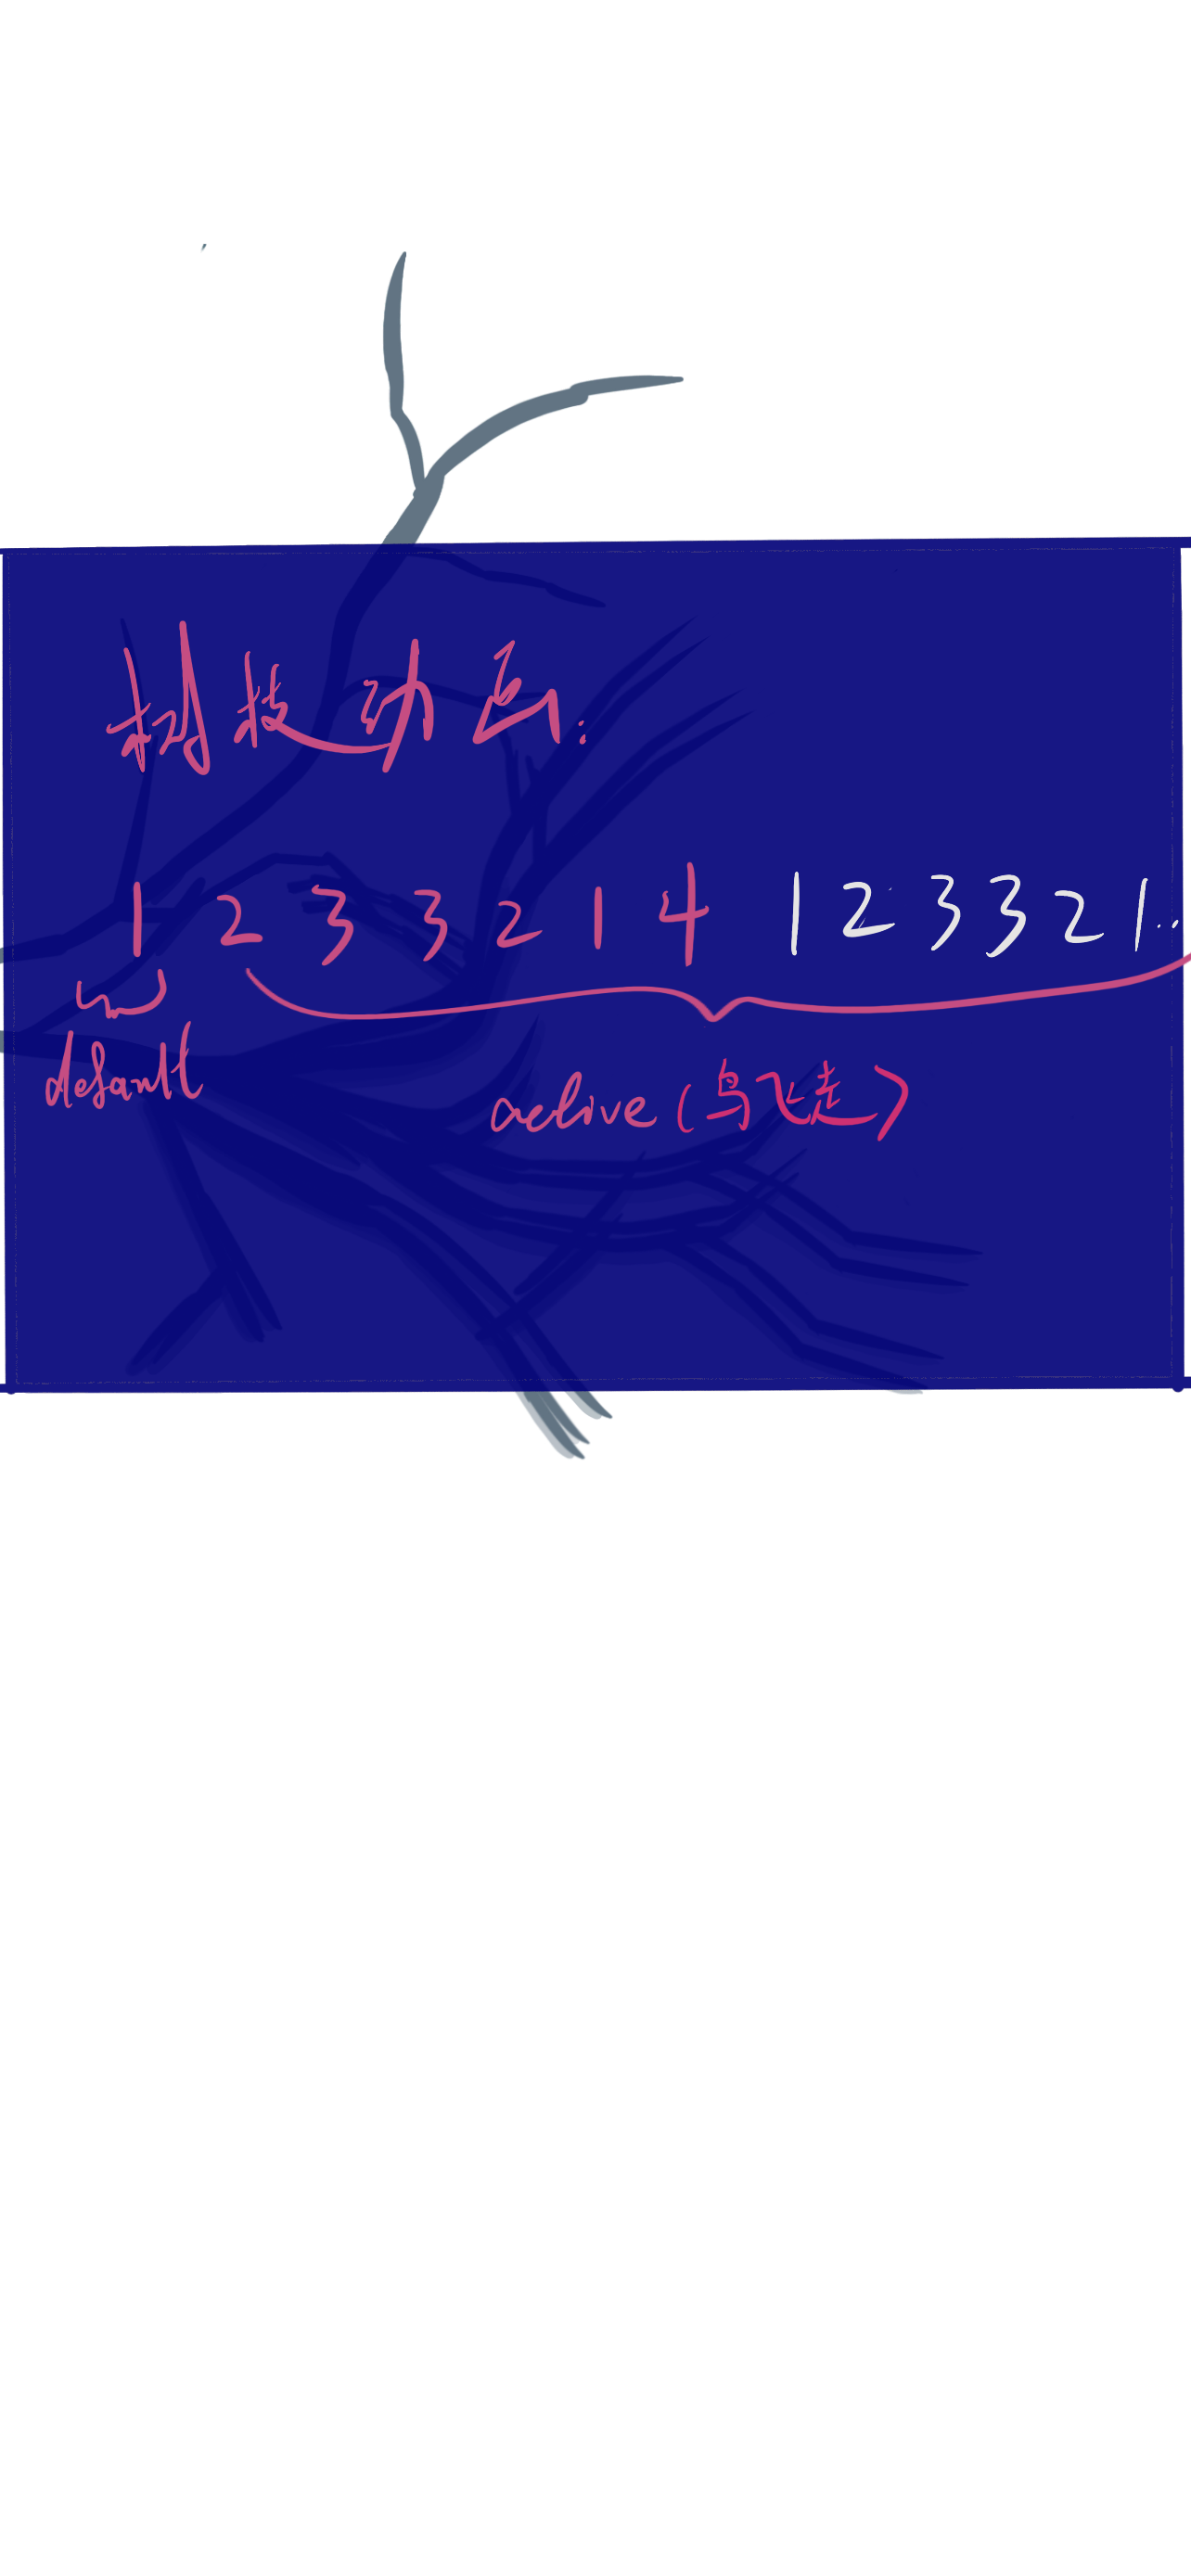 树枝动画:
1 2 3 3 2 1 4 1 2 3 3 2 1..
default
active (鸟飞走)